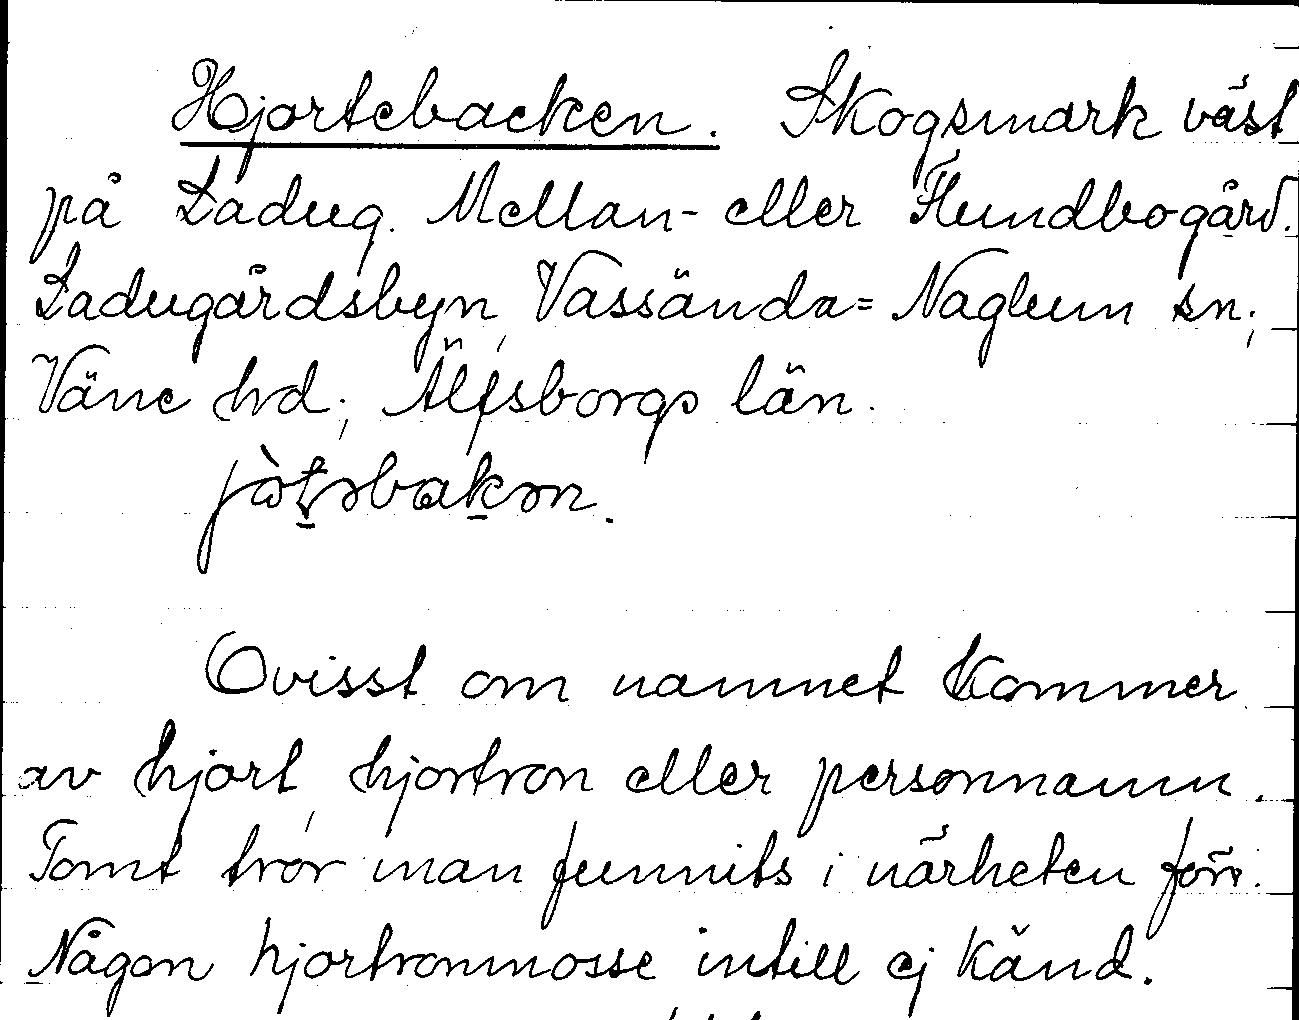 Hjortebacken. Skogsmark väst
på Ladug. Mellan- eller Hundbogård.
Ladugårdsbyn, Vassända= Naglum sn;
Väne hd; Älfsborgs län.
Ovisst om namnet kommer
av hjort, hjortron eller personnamn.
Tomt tror man funnits i närheten förr.
Någon hjortronmosse intill ej känd.